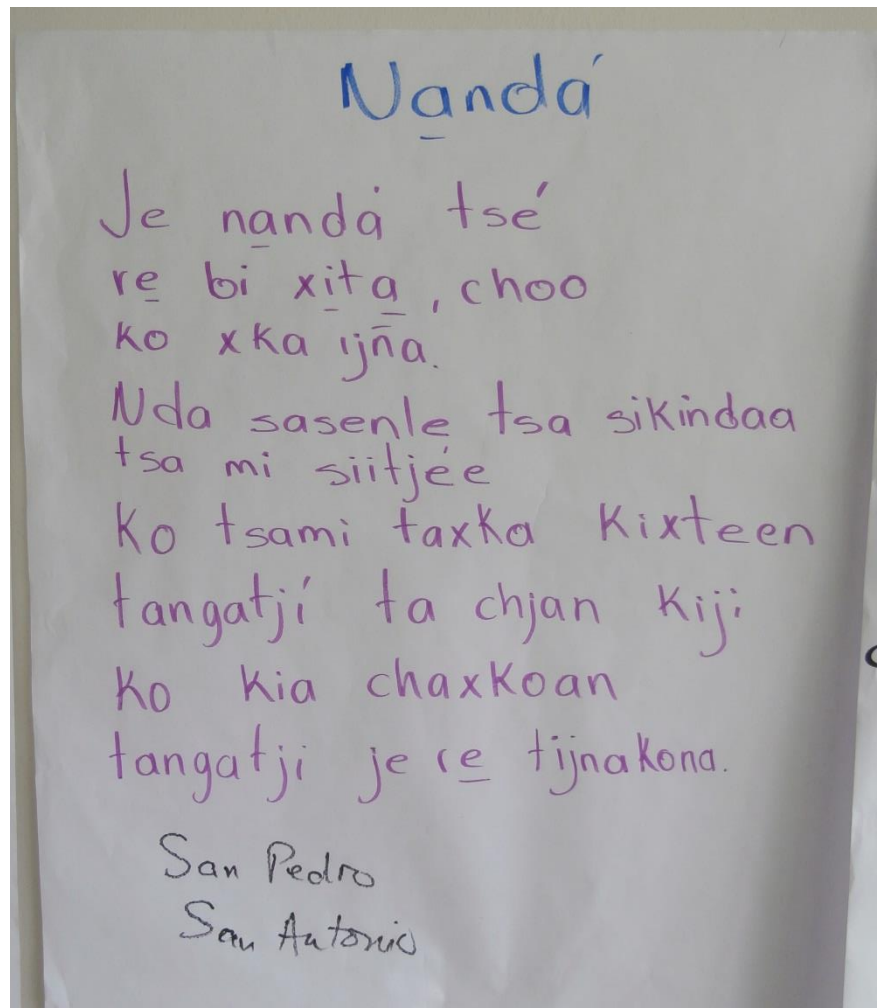 Na̱ndá
Je na̱ndá tsé
re̱ bi xi̱ta̱, choo
ko xka ijña.
Nda sasenle tsa sikindaa
tsa mi siitjée
Ko tsami taxka Kixteen
tangatjí ta chjan Kiji
Ko Kia chaxkoan
tangatji je re̱ tijnakona.
San Pedro
San Antonio